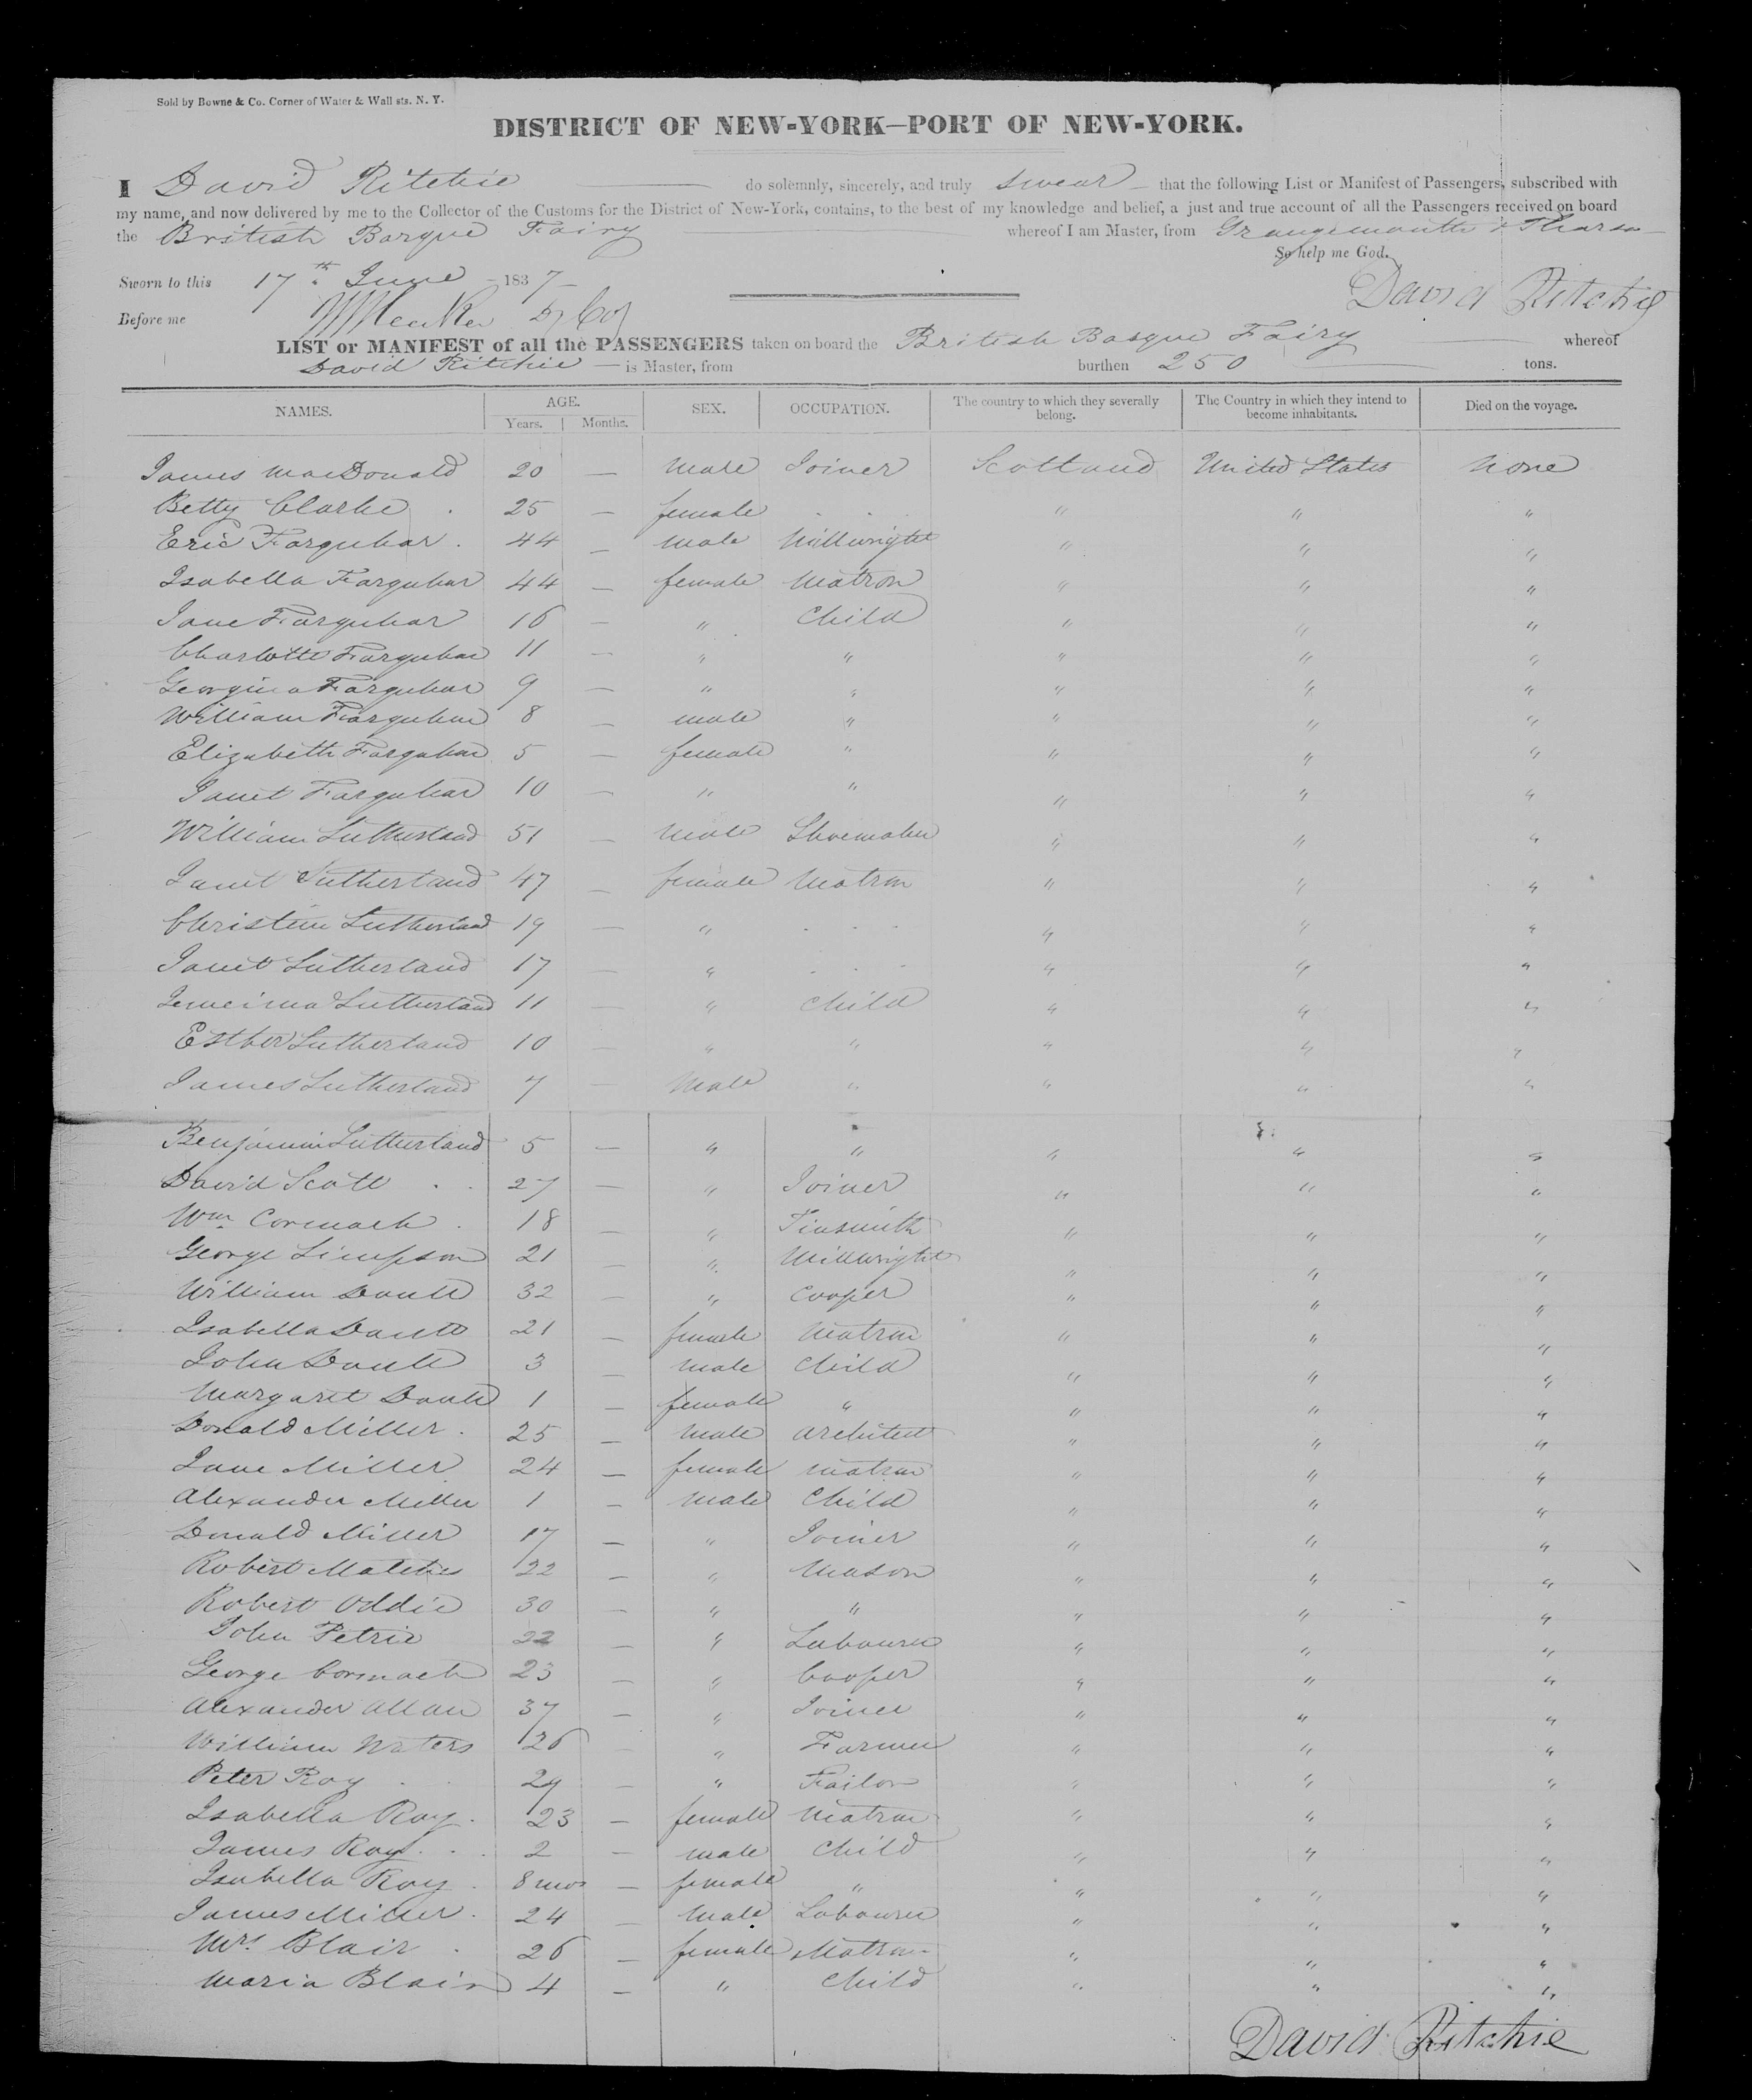 Sold by Bowne & Co. Corner of Water & Wall sts. N. Y.
DISTRICT OF NEW-YORK—PORT OF NEW-YORK.
I David Ritchie do solemnly, sincerely, and truly swear that the following List or Manifest of Passengers, subscribed with
my name, and now delivered by me to the Collector of the Customs for the District of New-York, contains, to the best of my knowledge and belief, a just and true account of all the Passengers received on board
the British Barque Fairy whereof I am Master, from Grangemouth & Thurso
So help me God.
Sworn to this 17th June 1837 David Ritchie
Before me
LIST or MANIFEST of all the PASSENGERS taken on board the British Barque Fairy whereof
David Ritchie is Master, from burthen 250 tons.
NAMES. AGE. Years. Months. SEX. OCCUPATION. The country to which they severally belong. The Country in which they intend to become inhabitants. Died on the voyage.
James MacDonald 20 — male Joiner Scotland United States None
Betty Clarke 25 — female " " "
Eric Farquhar 44 — male Millwright " " "
Isabella Farquhar 44 — female Matron " " "
Jane Farquhar 16 — " Child " " "
Charlotte Farquhar 11 — " " " " "
Georgina Farquhar 9 — " " " " "
William Farquhar 8 — male " " " "
Elizabeth Farquhar 5 — female " " " "
Janet Farquhar 10 — " " " " "
William Sutherland 51 — male Shoemaker " " "
Janet Sutherland 47 — female Matron " " "
Christina Sutherland 19 — " " " "
Janet Sutherland 17 — " " " "
Jemeima Sutherland 11 — " Child " " "
Esther Sutherland 10 — " " " " "
James Sutherland 7 — Male " " " "
Benjamin Sutherland 5 — " " " " "
David Scott 27 — " Joiner " " "
Wm Cormack 18 — " Tinsmith " " "
George Simpson 21 — " Millwright " " "
William Doull 32 — " Cooper " " "
Isabella Doull 21 — female Matron " " "
John Doull 3 — male Child " " "
Margaret Doull 1 — female " " " "
Donald Miller 25 — male Architect " " "
Jane Miller 24 — female matron " " "
Alexander Miller 1 — male Child " " "
Donald Miller 17 — " Joiner " " "
Robert 22 — " Mason " " "
Robert Oddie 30 — " " " " "
John Petrie 22 — " Labourer " " "
George Cormack 23 — " Cooper " " "
Alexander Allan 37 — " Joiner " " "
William Waters 26 — " Farmer " " "
Peter Roy — " Tailor " " "
Isabella Roy 23 — female Matron " " "
James Roy 2 — male Child " " "
Isabella Roy 8 mos — female " " " "
James Miller 24 — Male Labourer " " "
Mrs Blair 26 — female Matron " " "
Maria Blair 4 — " Child " " "
David Ritchie